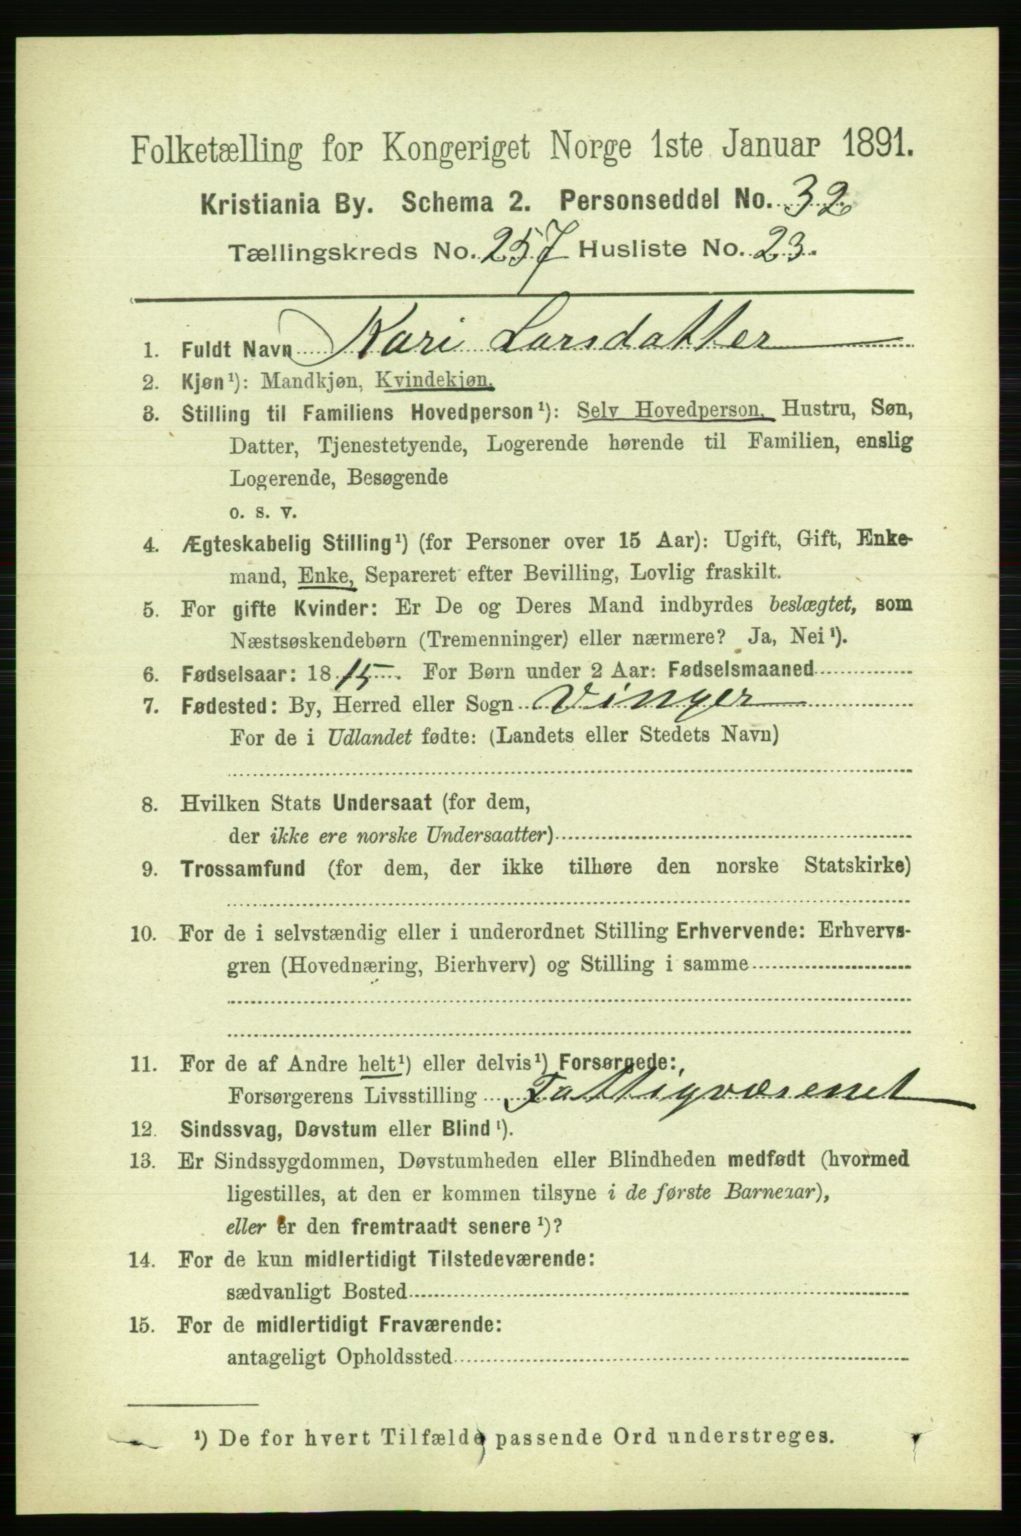 Folketælling for Kongeriget Norge 1ste Januar 1891.
Kristiania By. Schema 2. Personseddel No. 32
Tællingskreds No. 257 Husliste No. 23.
1. Fuldt Navn Kari Larsdatter
2. Kjøn¹): Mandkjøn, Kvindekjøn.
3. Stilling til Familiens Hovedperson¹): Selv Hovedperson, Hustru, Søn,
Datter, Tjenestetyende, Logerende hørende til Familien, enslig
Logerende, Besøgende
o. s. v.
4. Ægteskabelig Stilling¹) (for Personer over 15 Aar): Ugift, Gift, Enke-
mand, Enke, Separeret efter Bevilling, Lovlig fraskilt.
5. For gifte Kvinder: Er De og Deres Mand indbyrdes beslægtet, som
Næstsøskendebørn (Tremenninger) eller nærmere? Ja, Nei¹).
6. Fødselsaar: 1815. For Børn under 2 Aar: Fødselsmaaned
7. Fødested: By, Herred eller Sogn Vinger
For de i Udlandet fødte: (Landets eller Stedets Navn)
8. Hvilken Stats Undersaat (for dem,
der ikke ere norske Undersaatter)
9. Trossamfund (for dem, der ikke tilhøre den norske Statskirke)
10. For de i selvstændig eller i underordnet Stilling Erhvervende: Erhvervs-
gren (Hovednæring, Bierhverv) og Stilling i samme
11. For de af Andre helt¹) eller delvis¹) Forsørgede:,
Forsørgerens Livsstilling Fattigvæsenet
12. Sindssvag, Døvstum eller Blind¹).
13. Er Sindssygdommen, Døvstumheden eller Blindheden medfødt (hvormed
ligestilles, at den er kommen tilsyne i de første Barneaar),
eller er den fremtraadt senere¹)?
14. For de kun midlertidigt Tilstedeværende:
sædvanligt Bosted
15. For de midlertidigt Fraværende:
antageligt Opholdssted
¹) De for hvert Tilfælde passende Ord understreges.